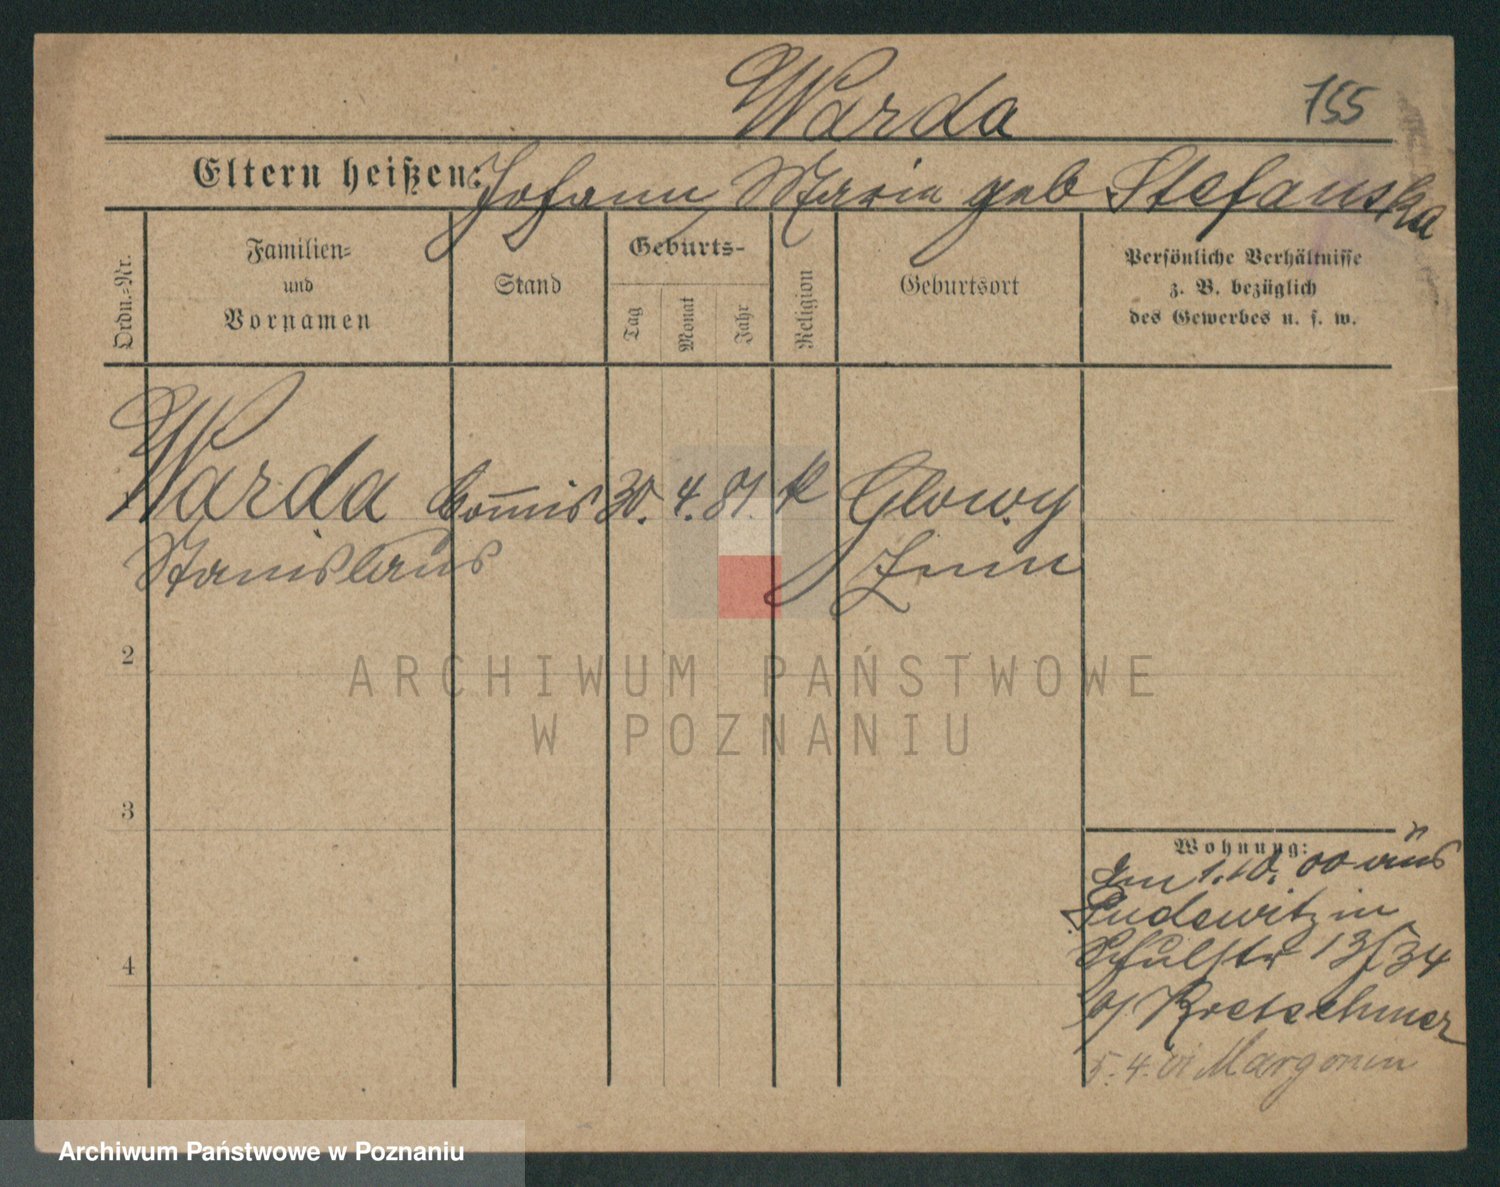 Warda
155
Eltern heißen: Johann, Maria geb Stefanska
Ordn.-Nr.
Familien- und Vornamen
Stand
Geburts-
Tag
Monat
Jahr
Religion
Geburtsort
Persönliche Verhältnisse
z. B. bezüglich
des Gewerbes u. s. w.
Warda Com̅is 30. 4. 81. k Glowy
Stanislaus Znin
2
3
4
Wohnung:
Am 1.10.00 aus
Pudewitz in
Schulstr 13/34
b/ Kretschmer
5.4.01 Margonin
ARCHIWUM PAŃSTWOWE
W POZNANIU
Archiwum Państwowe w Poznaniu